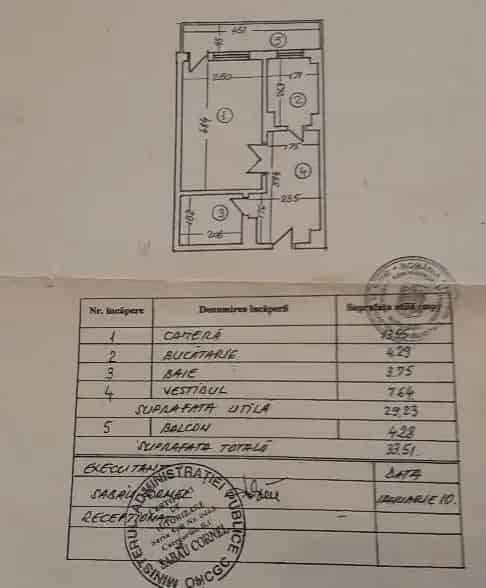 451
95
5
280
171
263
2
1
484
175
4
394
235
3
182
206
Nr. încăpere Denumirea încăperii Suprafața utilă (mp)
1 CAMERĂ 13.55
2 BUCĂTARIE 4.29
3 BAIE 3.75
4 VESTIBUL 7.64
SUPRAFAȚA UTILĂ 29,23
5 BALCON 4.28
SUPRAFAȚA TOTALĂ 33.51.
EXECUTANT DATA
SABĂU CORNEL IANUARIE 10.
RECEPȚIONAT
MINISTERUL ADMINISTRAȚIEI PUBLICE
AUTORIZARE
SABĂU CORNEL
ROMÂNIA